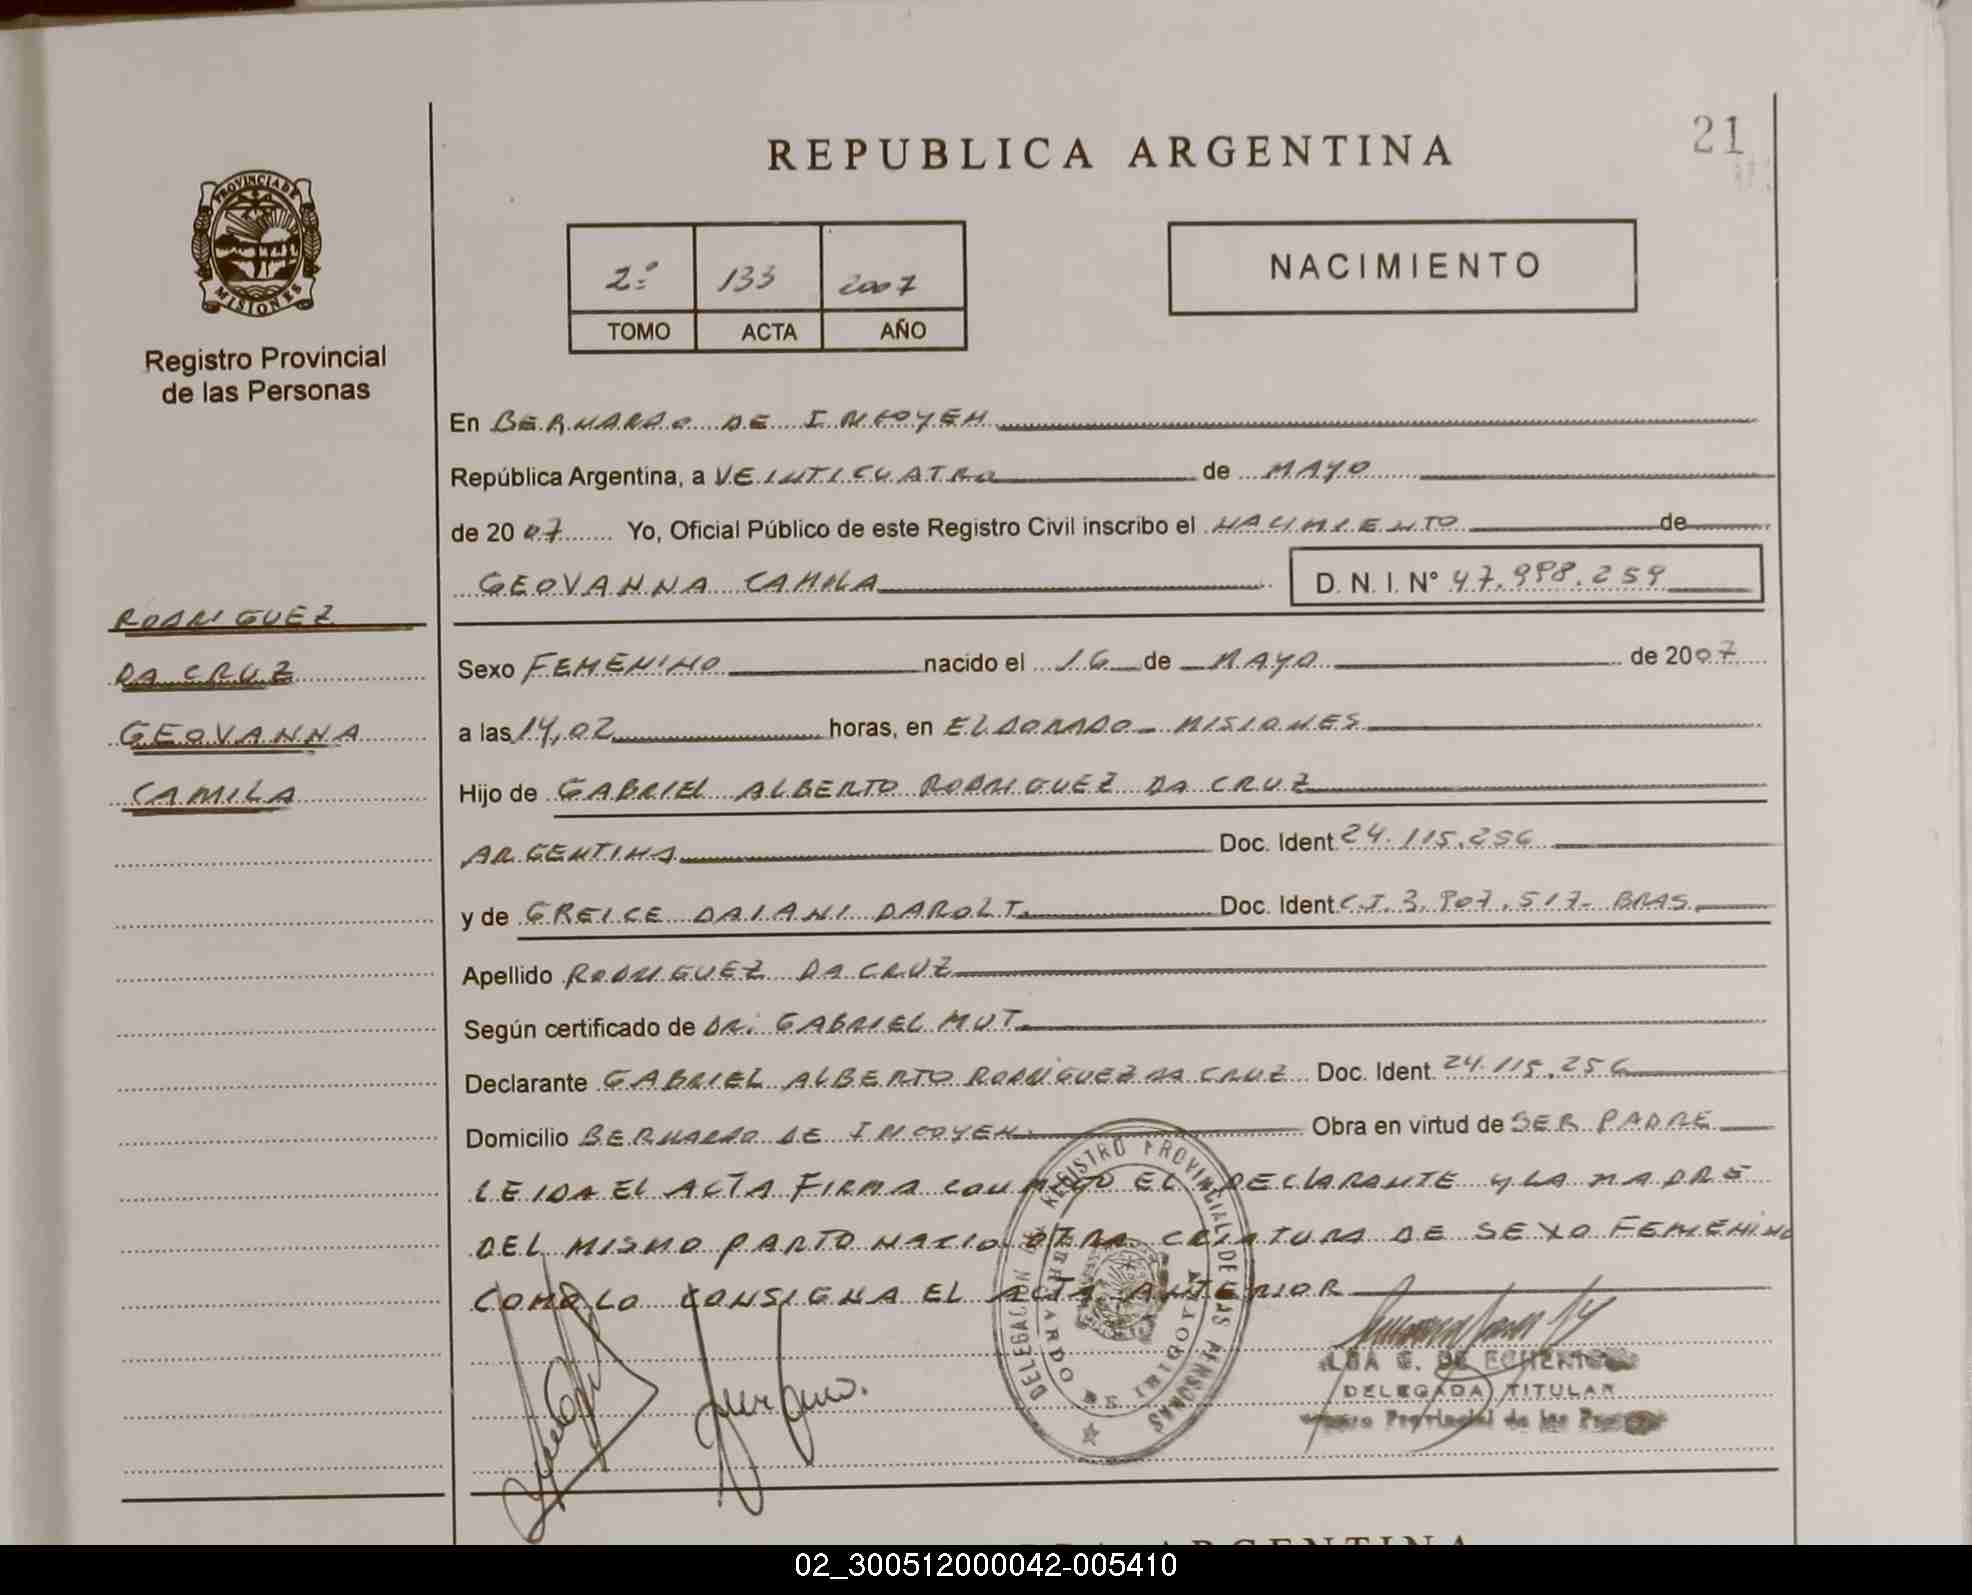 REPUBLICA ARGENTINA
21
PROVINCIA DE MISIONES
Registro Provincial
de las Personas
2º 133 2007
TOMO ACTA AÑO
NACIMIENTO
En BERNARDO DE IRIGOYEN
República Argentina, a VEINTICUATRO de MAYO
de 2007 Yo, Oficial Público de este Registro Civil inscribo el NACIMIENTO de
GEOVANNA CAMILA D. N. I. N° 47.998.259
RODRIGUEZ
DA CRUZ
GEOVANNA
CAMILA
Sexo FEMENINO nacido el 16 de MAYO de 2007
a las 14,02 horas, en ELDORADO - MISIONES
Hijo de GABRIEL ALBERTO RODRIGUEZ DA CRUZ
ARGENTINA Doc. Ident 24.115.256
y de GREICE DAIANI DAROLT Doc. Ident C.I. 3.907.517- BRAS.
Apellido RODRIGUEZ DA CRUZ
Según certificado de DR. GABRIEL MUT
Declarante GABRIEL ALBERTO RODRIGUEZ DA CRUZ Doc. Ident. 24.115.256
Domicilio BERNARDO DE IRIGOYEN Obra en virtud de SER PADRE
LEIDA EL ACTA FIRMA CONMIGO EL DECLARANTE Y LA MADRE
DEL MISMO PARTO NACIO OTRA CRIATURA DE SEXO FEMENINO
COMO LO CONSIGNA EL ACTA ANTERIOR
DELEGACION REGISTRO PROVINCIAL DE LAS PERSONAS
BERNARDO DE IRIGOYEN
G. DE
DELEGADA TITULAR
Provincial de las
ARGENTINA
02_300512000042-005410